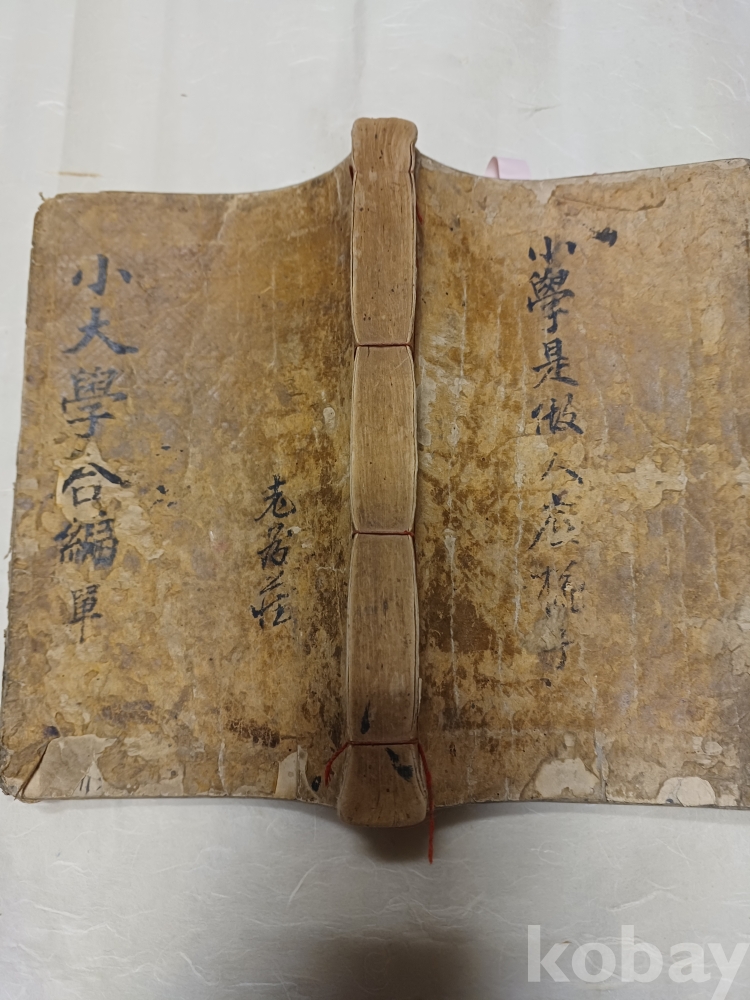 小學是做人底樣子
老莊
小大學合編 單
kobay